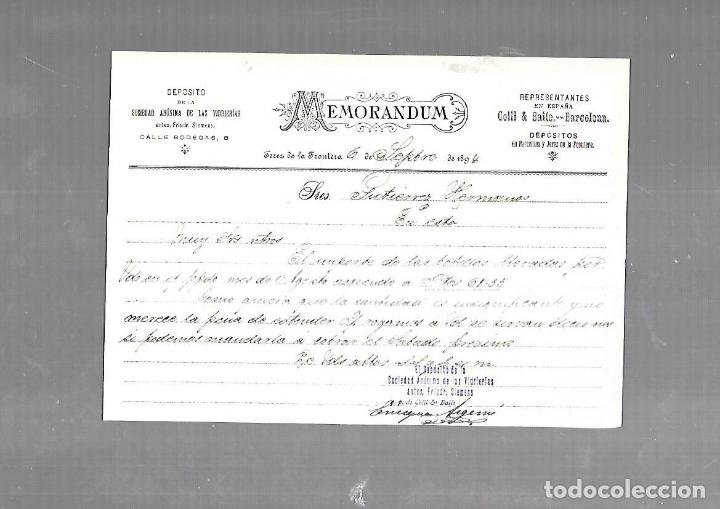 DEPOSITO
DE LA
SOCIEDAD ANÓNIMA DE LAS VIDRIERÍAS
Antes. Friedr. Siemens.
CALLE BODEGAS, 8
MEMORANDUM
REPRESENTANTES
EN ESPAÑA
Colli & Bails. Barcelona.
DEPÓSITOS
en Barcelona y Jerez de la Frontera.
Jerez de la Frontera 6 de Sepbre de 189
Sres. Gutierrez Hermanos
En esta
Muy Srs ntros
El importe de las botellas llevadas por
Vds en el pdo mes de Agosto asciende a Ptas 61-55
Como quiera que la cantidad es insignificante y no
merece la pena de estender rogamos a Vd se servan decirnos
si podemos mandarla a cobrar el Sabado proximo
El Depósito de la
Sociedad Anónima de las Vidrierías
Antes, Friedr. Siemens
p. p. de Colli & Bails
todocoleccion.net